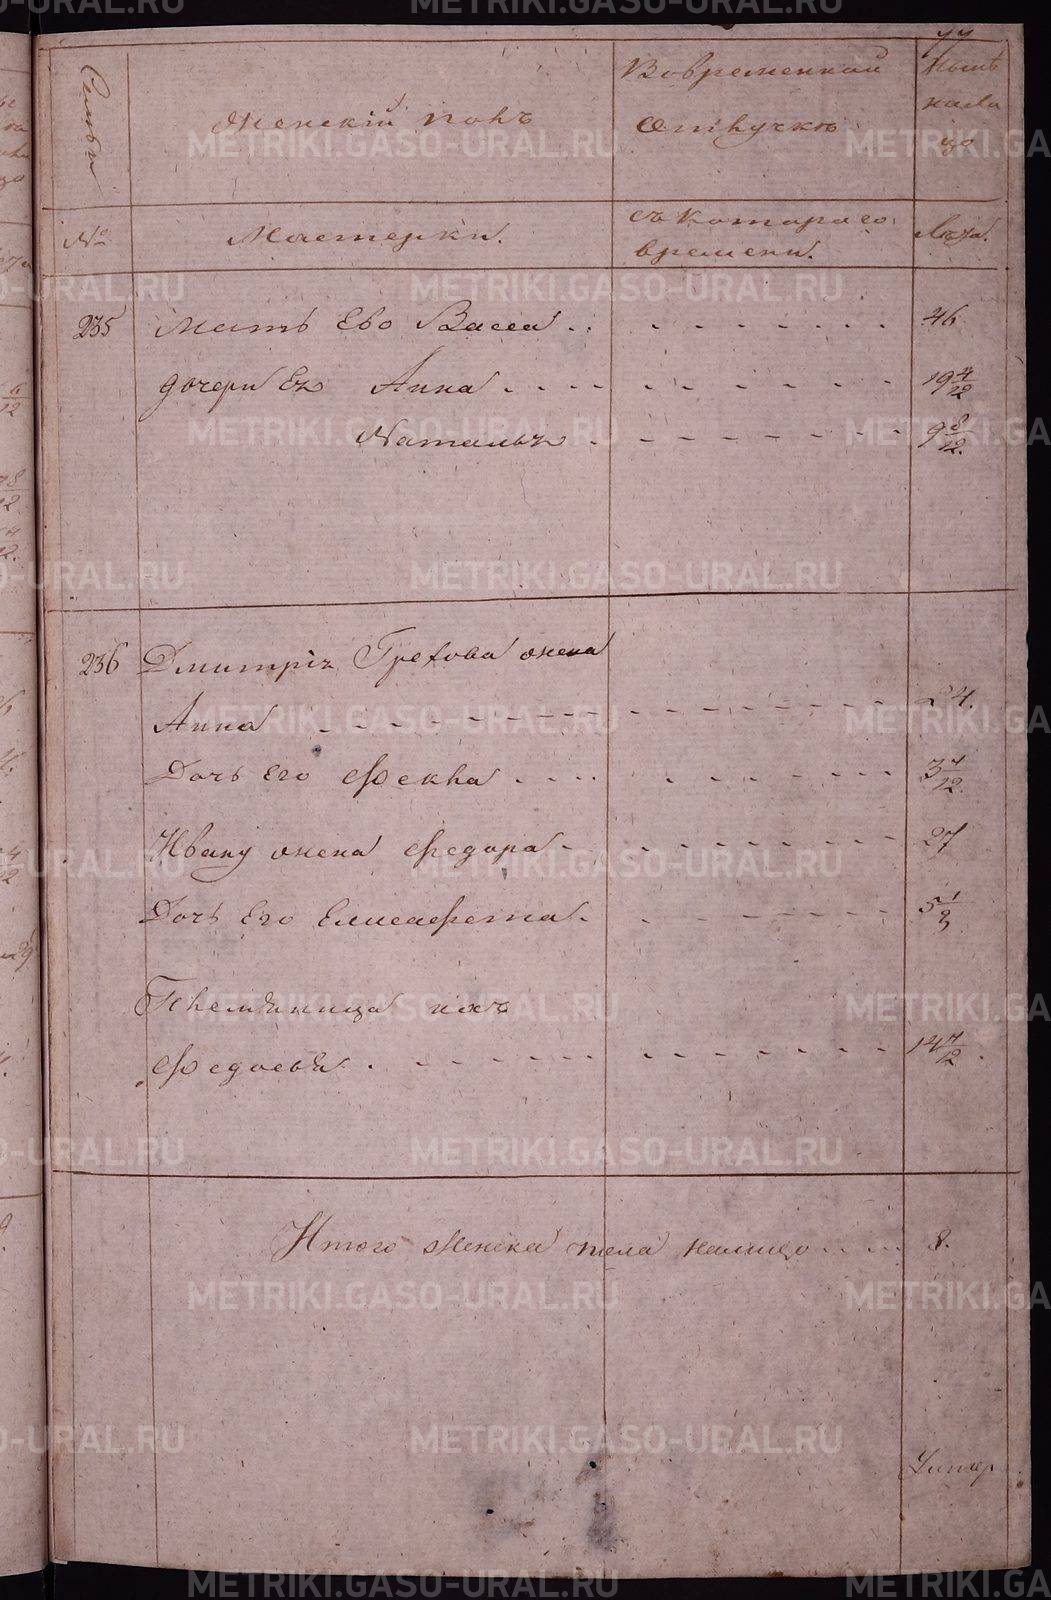 77
Семьи
Женскiй полъ
Во временной
отлучкѣ
Нынѣ
на ли
цо
№
Мастерки.
съ которого
времени.
Лѣта.
235 Мать Ево Васса 46
дочери Ея Анна 19 4/12
Наталья 9 8/12.
236 Дмитрiя Грехова жена
Анна 24.
Дочь его Фекла 3 7/12
Ивану жена Федора 27
Дочь Его Елисафета. 5 1/2
Племянница ихъ
Федосья. 14 7/12.
Итого женска пола налицо 8.
METRIKI.GASO-URAL.RU